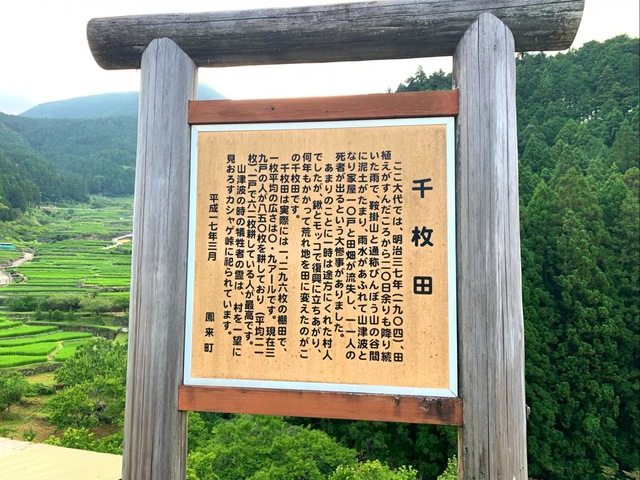 千枚田
ここ大代では、明治三七年（一九〇四）、田
植えがすんだころから三〇日余りも降り続
いた雨で、鞍掛山と通称びんぼう山の谷間
に泥土がたまり、雨水があふれて山津波と
なり家屋一〇戸と田畑が流失し、一一人の
死者が出るという大惨事がありました。
あまりのことに一時は途方にくれた村人
でしたが、鍬とモッコで復興に立ちあがり、
何年もかかって荒れ地を田に変えたのがこ
の千枚田です。
千枚田は実際には一、二九六枚の棚田で、
一枚平均の広さは〇．九アールです。現在三
九戸の人が八五〇枚を耕しており（平均二一
枚）、一戸で六二枚耕している人が最高です。
山津波の時の犠牲者の霊は、村を一望に
見おろすカシャゲ峠に祀られています。
平成一七年三月
鳳来町